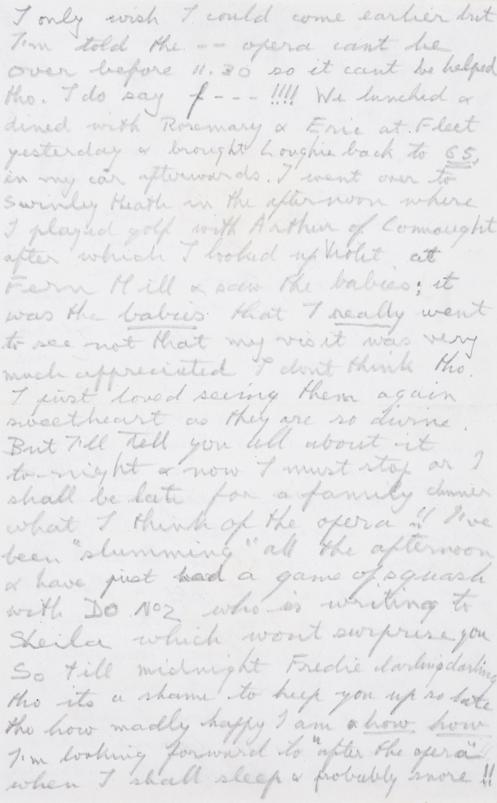 I only wish I could come earlier but
I'm told the -- opera cant be
over before 11.30 so it cant be helped
tho. I do say f --- !!!! We lunched &
dined with Rosemary & Eric at Fleet
yesterday & brought Loughie back to 65,
in my car afterwards. I went over to
Swinley Heath in the afternoon where
I played golf with Arthur of Connought
after which I looked up Violet at
Fern Hill & saw the babies; it
was the babies that I really went
to see not that my visit was very
much appreciated I dont think tho.
I just loved seeing them again
sweetheart as they are so divine.
But I'll tell you all about it
to-night & now I must stop or I
shall be late for a family dinner
what I think of the opera !! I've
been "slumming" all the afternoon
& have just had a game of squash
with Do No2 who is writing to
Sheila which wont surprise you
So till midnight Fredie darling darling
tho its a shame to keep you up so late
tho how madly happy I am & how how
I'm looking forward to "after the opera"
when I shall sleep & probably snore !!